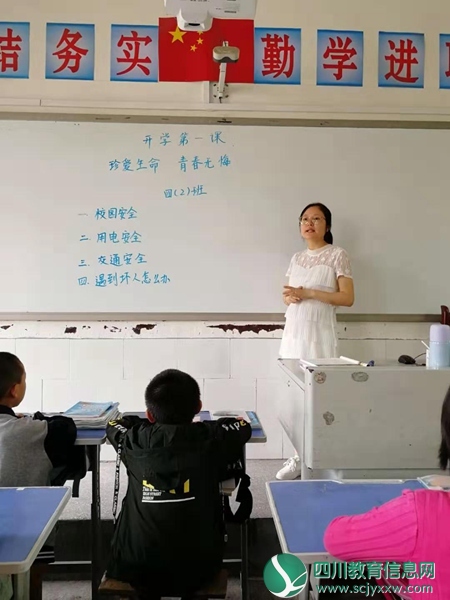 结 务 实 勤 学 进
开学第一课
珍爱生命 青春无悔
四(2)班
一 校园安全
二. 用电安全
三. 交通安全
四. 遇到坏人怎么办
四川教育信息网
www.scjyxxw.com